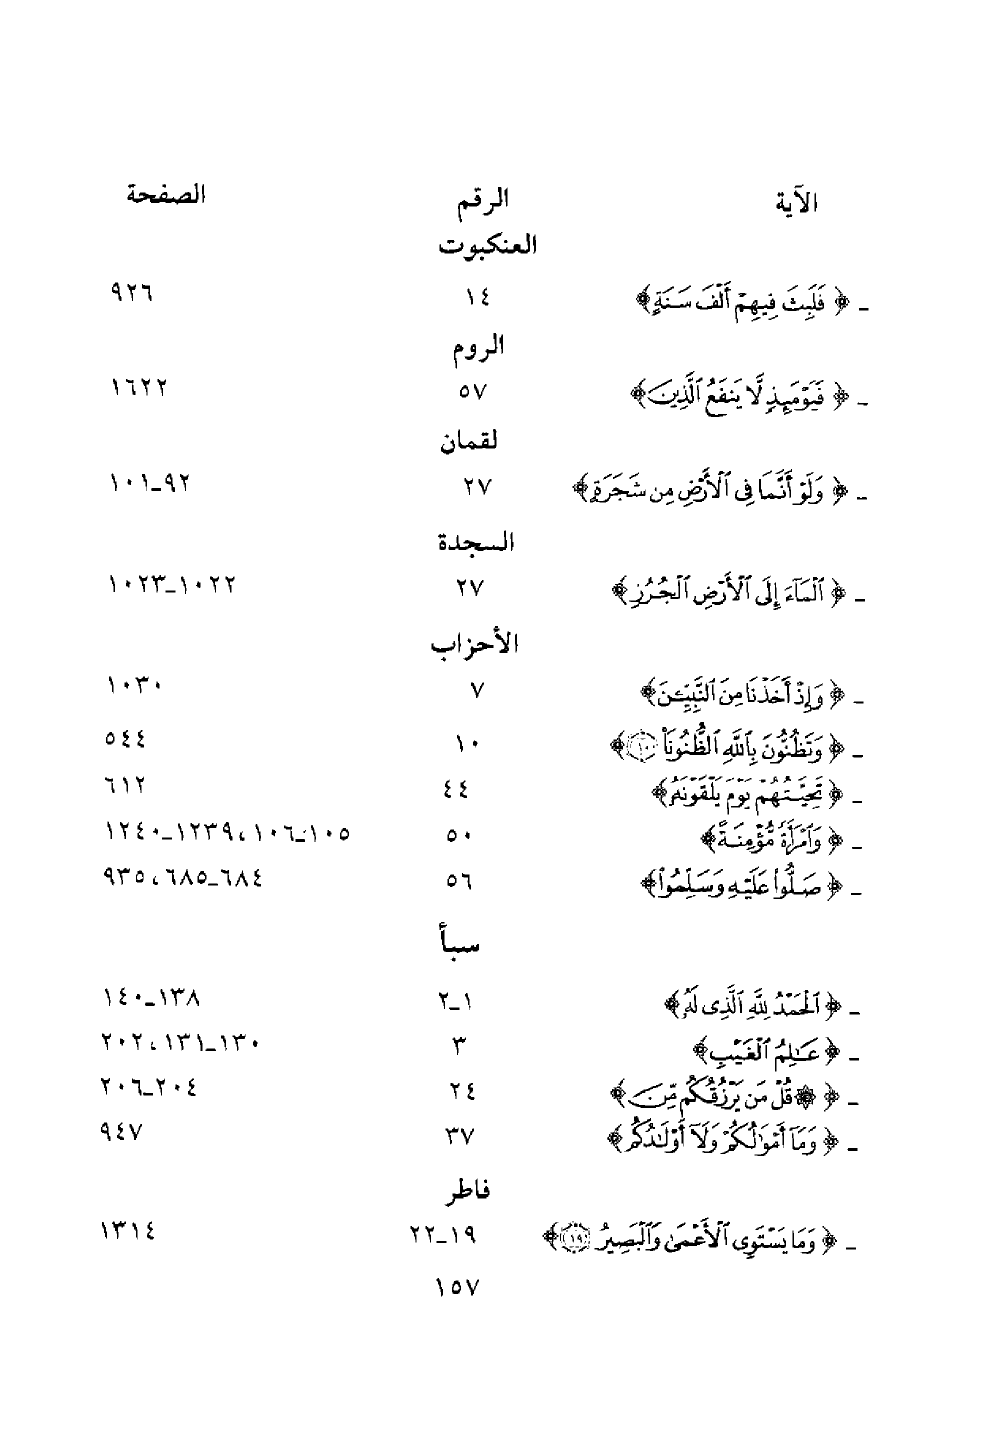 الآية الرقم الصفحة
العنكبوت
ـ ﴿ فَلَبِثَ فِيهِمْ أَلْفَ سَنَةٍ ﴾ ١٤ ٩٢٦
الروم
ـ ﴿ فَيَوْمَئِذٍ لَّا يَنفَعُ ٱلَّذِينَ ﴾ ٥٧ ١٦٢٢
لقمان
ـ ﴿ وَلَوْ أَنَّمَا فِى ٱلْأَرْضِ مِن شَجَرَةٍ ﴾ ٢٧ ٩٢ـ١٠١
السجدة
ـ ﴿ ٱلْمَآءَ إِلَى ٱلْأَرْضِ ٱلْجُرُزِ ﴾ ٢٧ ١٠٢٢ـ١٠٢٣
الأحزاب
ـ ﴿ وَإِذْ أَخَذْنَا مِنَ ٱلنَّبِيِّـۧنَ ﴾ ٧ ١٠٣٠
ـ ﴿ وَتَظُنُّونَ بِٱللَّهِ ٱلظُّنُونَا۠ ١٠ ﴾ ١٠ ٥٤٤
ـ ﴿ تَحِيَّتُهُمْ يَوْمَ يَلْقَوْنَهُۥ ﴾ ٤٤ ٦١٢
ـ ﴿ وَٱمْرَأَةً مُّؤْمِنَةً ﴾ ٥٠ ١٠٥ـ١٠٦، ١٢٣٩ـ١٢٤٠
ـ ﴿ صَلُّوا۟ عَلَيْهِ وَسَلِّمُوا۟ ﴾ ٥٦ ٦٨٤ـ٦٨٥، ٩٣٥
سبأ
ـ ﴿ ٱلْحَمْدُ لِلَّهِ ٱلَّذِى لَهُۥ ﴾ ١ـ٢ ١٣٨ـ١٤٠
ـ ﴿ عَـٰلِمُ ٱلْغَيْبِ ﴾ ٣ ١٣٠ـ١٣١، ٢٠٢
ـ ﴿ ۞ قُلْ مَن يَرْزُقُكُم مِّنَ ﴾ ٢٤ ٢٠٤ـ٢٠٦
ـ ﴿ وَمَآ أَمْوَٰلُكُمْ وَلَآ أَوْلَـٰدُكُم ﴾ ٣٧ ٩٤٧
فاطر
ـ ﴿ وَمَا يَسْتَوِى ٱلْأَعْمَىٰ وَٱلْبَصِيرُ ١٩ ﴾ ١٩ـ٢٢ ١٣١٤
١٥٧